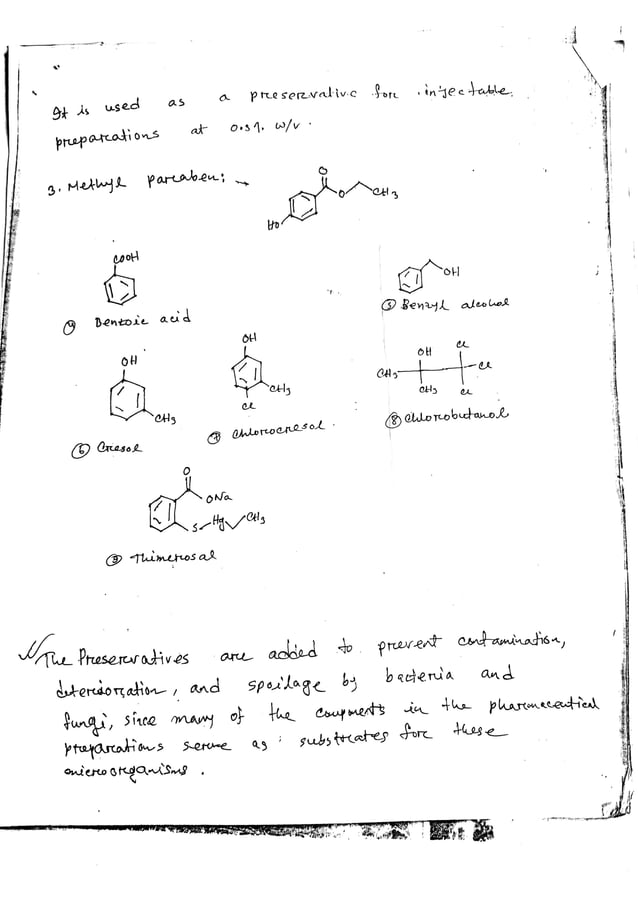 It is used as a preservative for injectable
preparations at 0.5%. w/v.
3. Methyl paraben:
O
O
CH3
HO
COOH
OH
④ Bentoic acid
⑤ Benzyl alcohol
OH
CH3
⑥ Cresol
OH
CH3
Cl
⑦ Chlorocresol.
OH
Cl
CH3
Cl
CH3
Cl
⑧ Chlorobutanol
O
ONa
S
Hg
CH3
⑨ Thimerosal
The Preservatives are added to prevent contamination,
deterioration, and spoilage by bacteria and
fungi, since many of the components in the pharmaceutical
preparations serve as substrates for these
microorganisms.